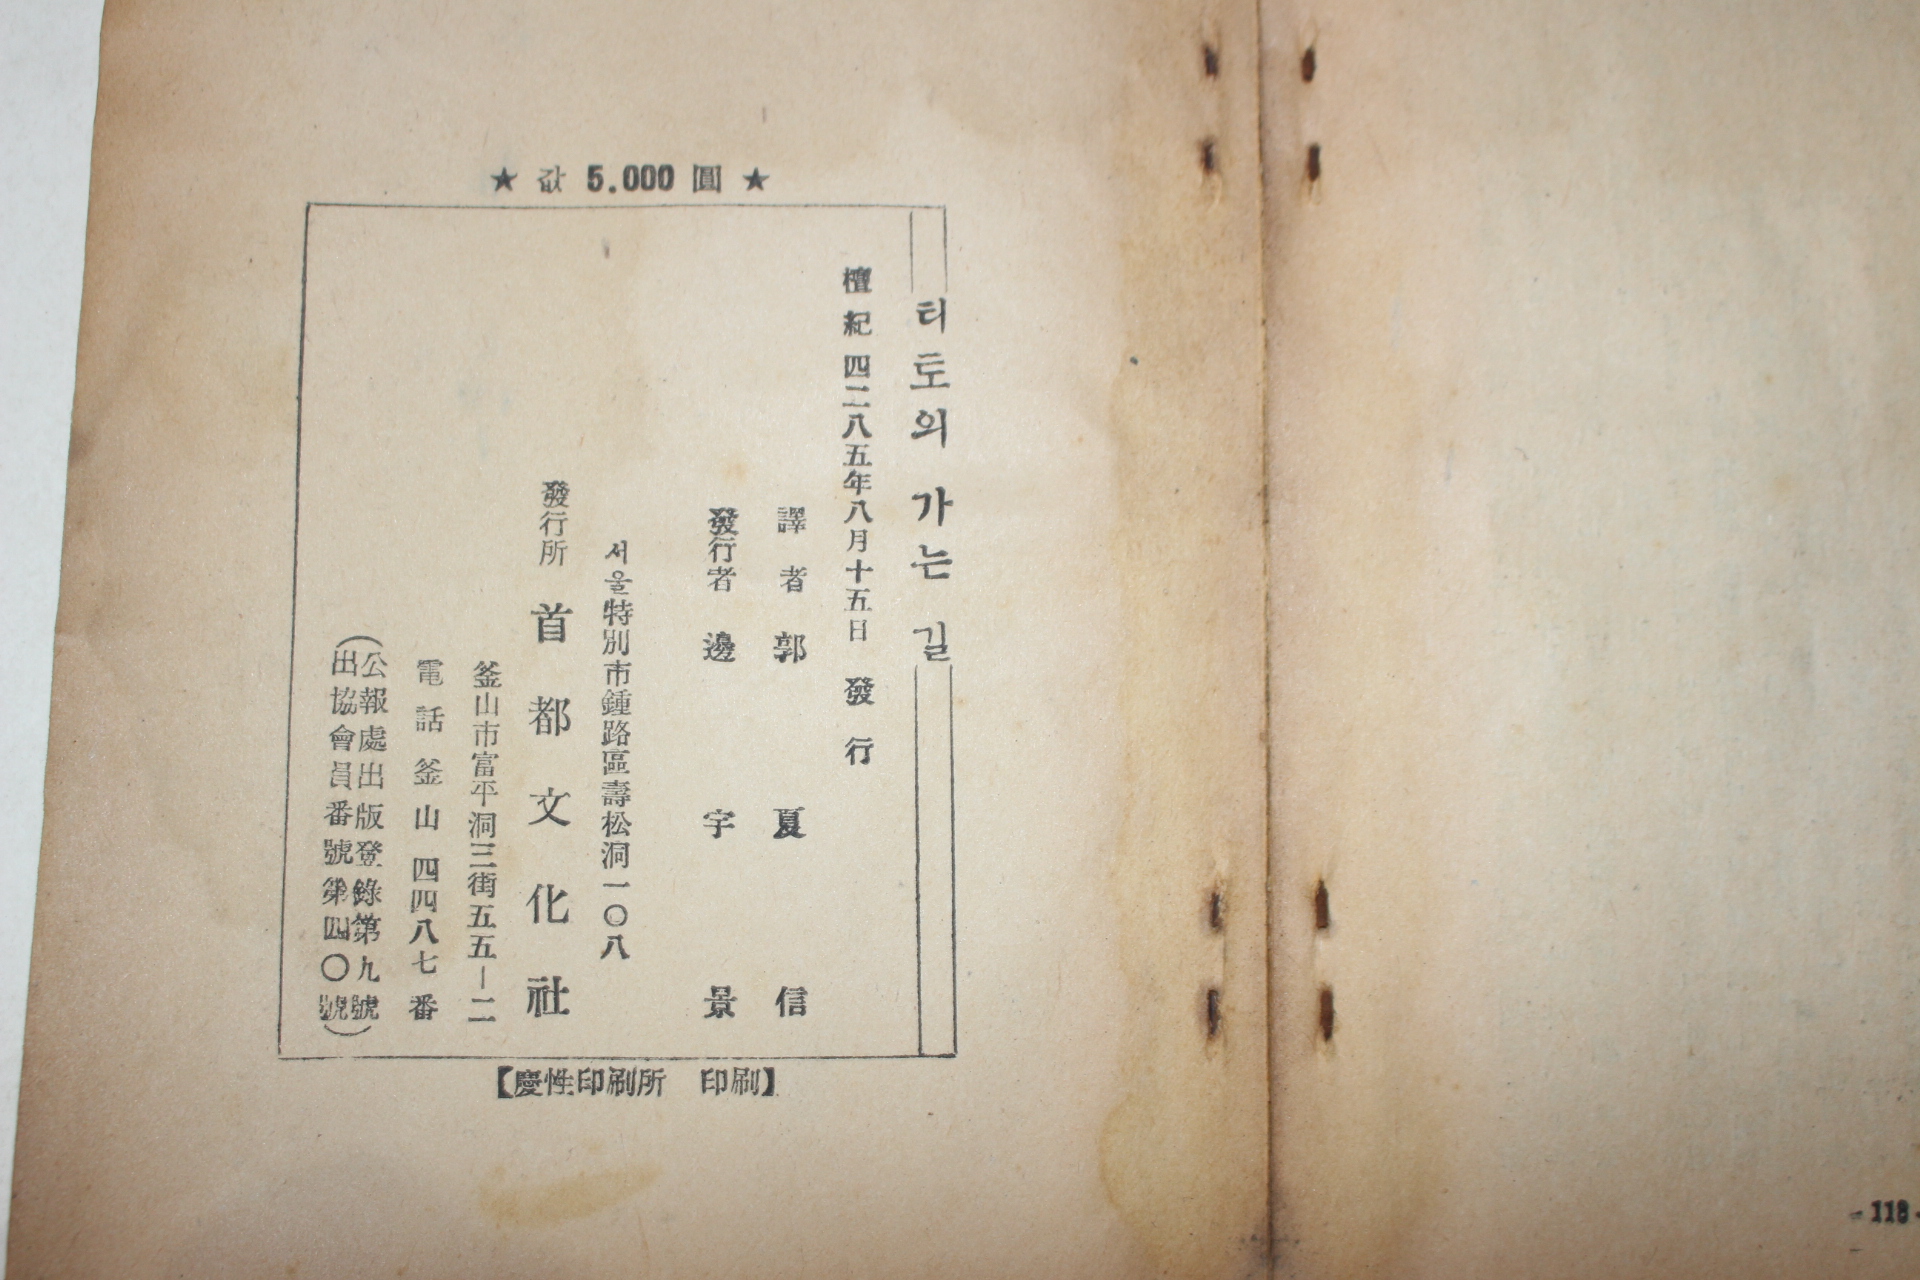 ★ 값 5.000 圓 ★
티토의 가는 길
檀紀四二八五年八月十五日 發行
譯者 郭夏信
發行者 邊宇景
서울特別市鍾路區壽松洞一〇八
發行所 首都文化社
釜山市富平洞三街五五—二
電話釜山四四八七番
(公報處出版登錄第九號
出協會員番號第四〇號)
【慶性印刷所 印刷】
- 118 -